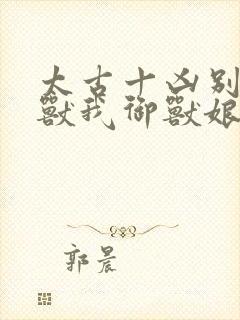 太古十凶别
獸我御獸娘
郭晨